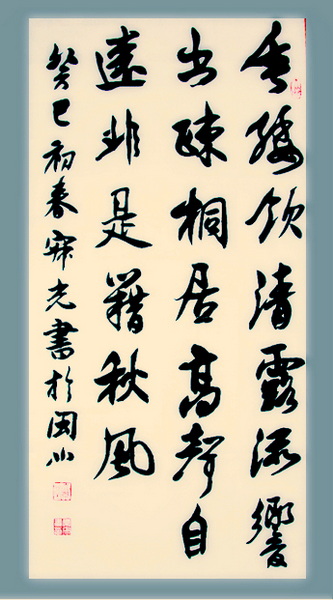 垂緌飲清露流響
出疎桐居高聲自
遠非是籍秋風
癸巳初春光書於